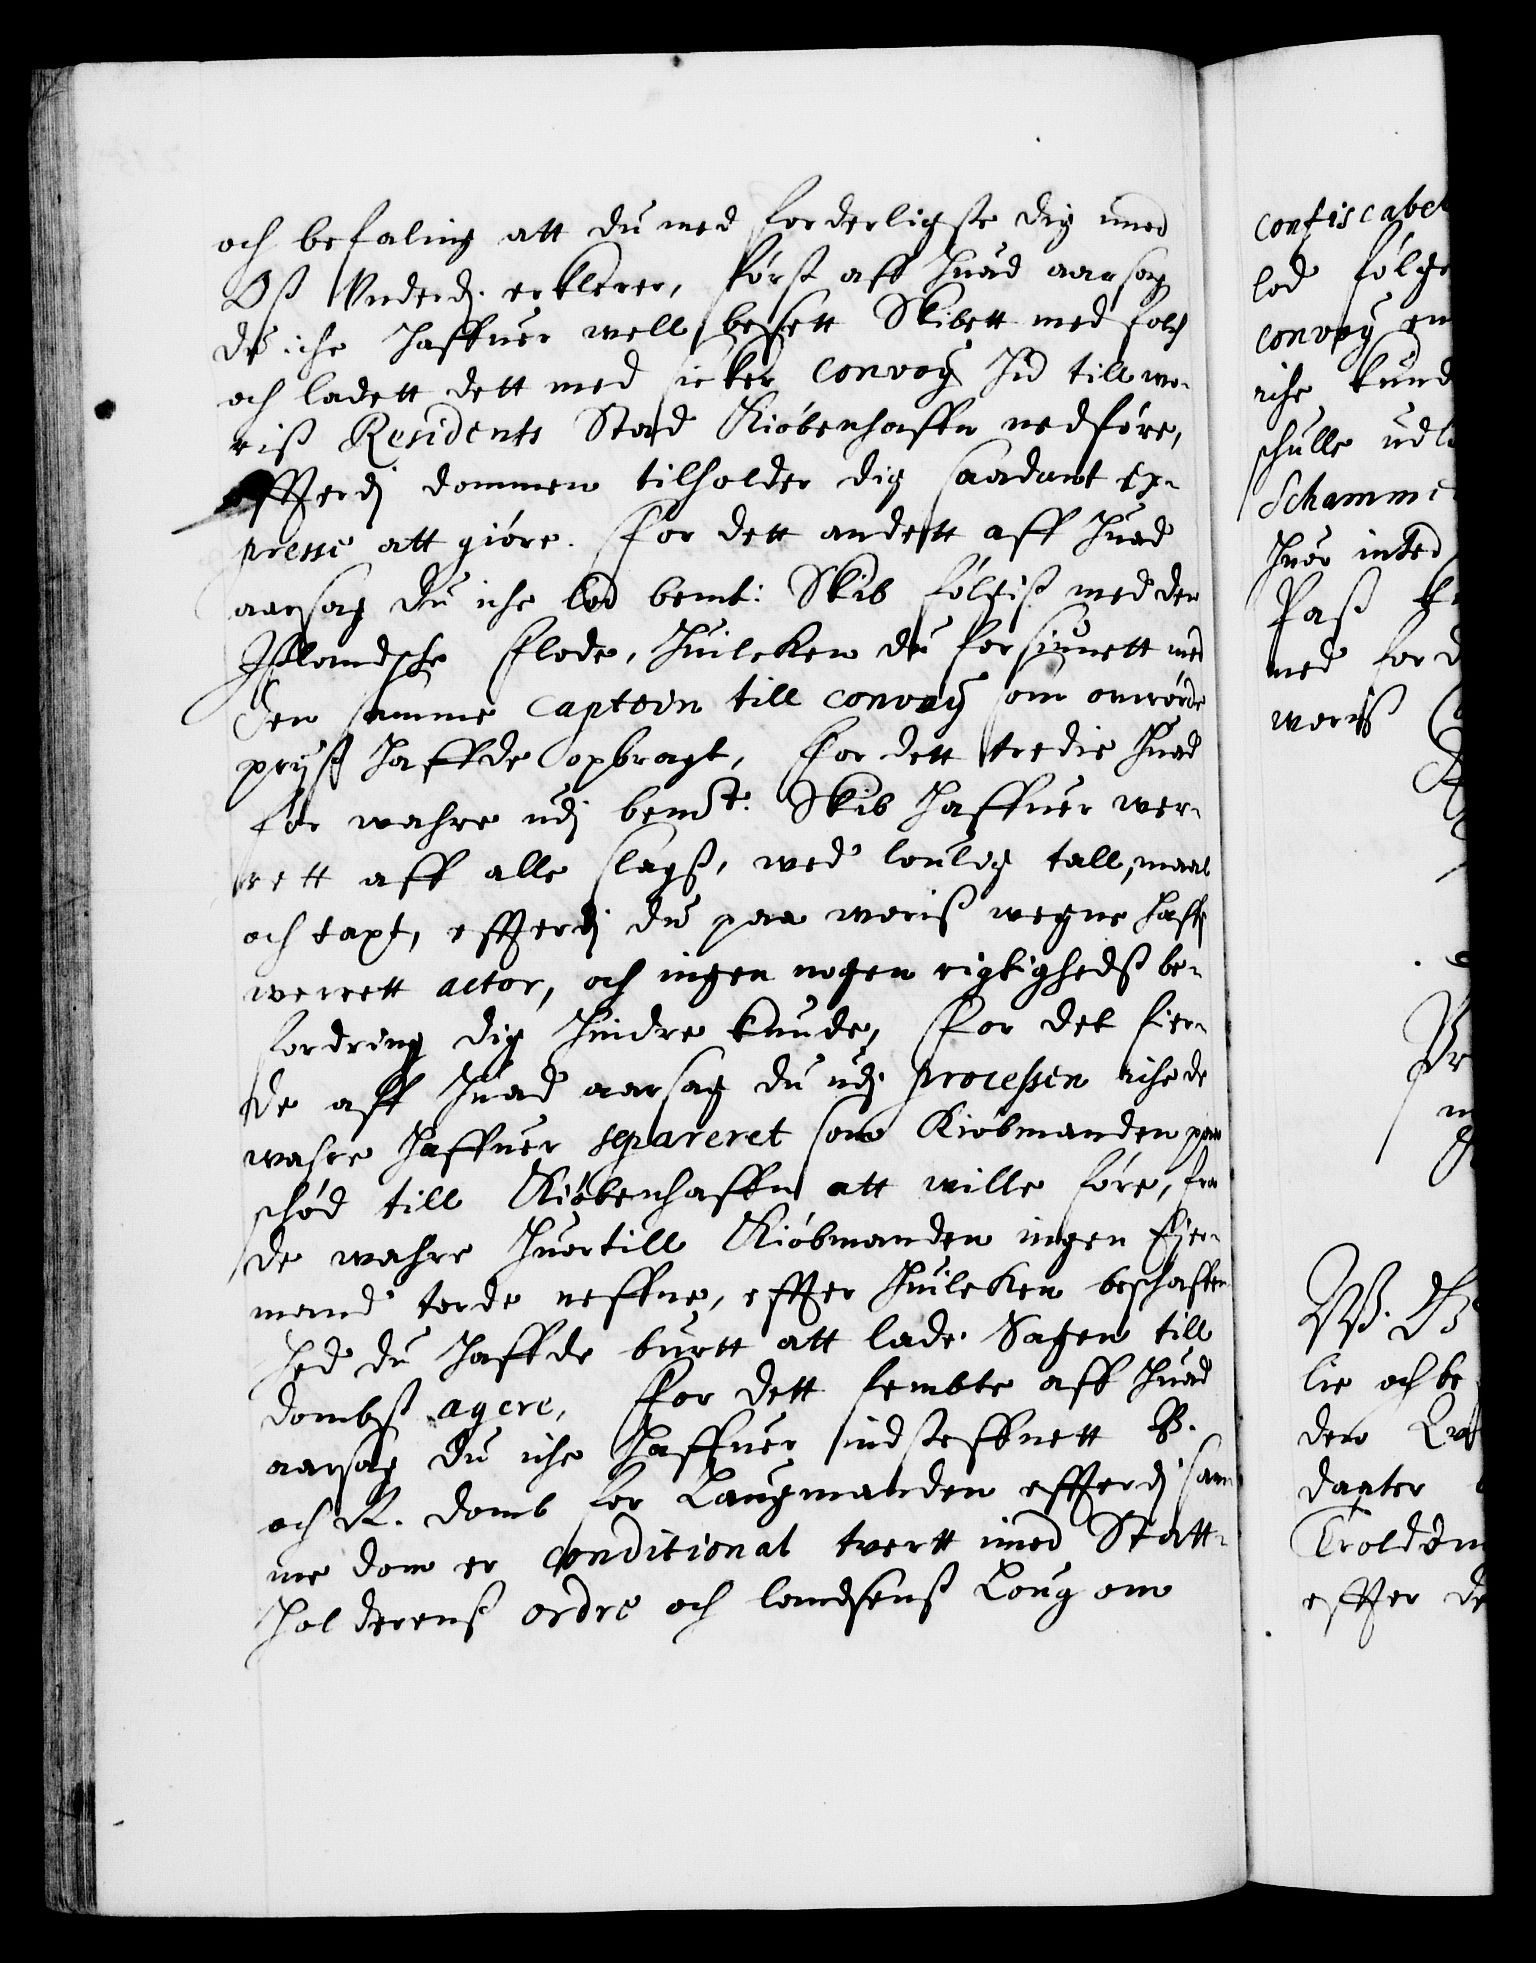 och befaling att du med forderligste dig imod
Oss Underd. erklerer, først aff huad aarsag
du iche haffuer well besett Skibett med folch
och ladett dett med sicker Convoy hid till wo-
riss Residents Stad Kiøbenhaffn nedføre,
effterdj dommen tilholder dig saadant ex-
presse att giøre. For dett andett aff huad
aarsag du iche lod bemt: Skib følgiss med den
Isslandsche flode, huilcken du forsiunett med
den samme Captein till convoy som omrørde
pryss haffde opbragt, For dett tredie huad
for wahre udj bemt: Skib haffuer wer-
rett aff alle slagss, wed louligh tall, maal
och taxt, effterdj du paa woriss wegne haffr
werrett actor, och ingen nogen rigtighedss be-
fordring dig hindre kunde, For det fier-
de aff huad aarsag du udj processen iche de
wahre haffuer separeret som Kiøbmanden paa
schød till Kiøbenhaffn att wille føre, fra
de wahre huortill Kiøbmanden ingen Eier-
mand torde neffne, effter huilcken beschaffen-
hed du haffde burtt att lade Sagen till
dombss agere, For dett fembte aff huad
aarsag du iche haffuer indsteffnett B.
och R. domb for Laugmanden efftterdj sam-
me dom er conditional tvertt imod Statt-
holderenss ordre och landsenss Loug om
confiscabel
lod følge
convoy
iche kund
schulle udl
Schamme
huor inted
Pass
med for
woriss
lie och be
den
dapter
Trolddom
effter de